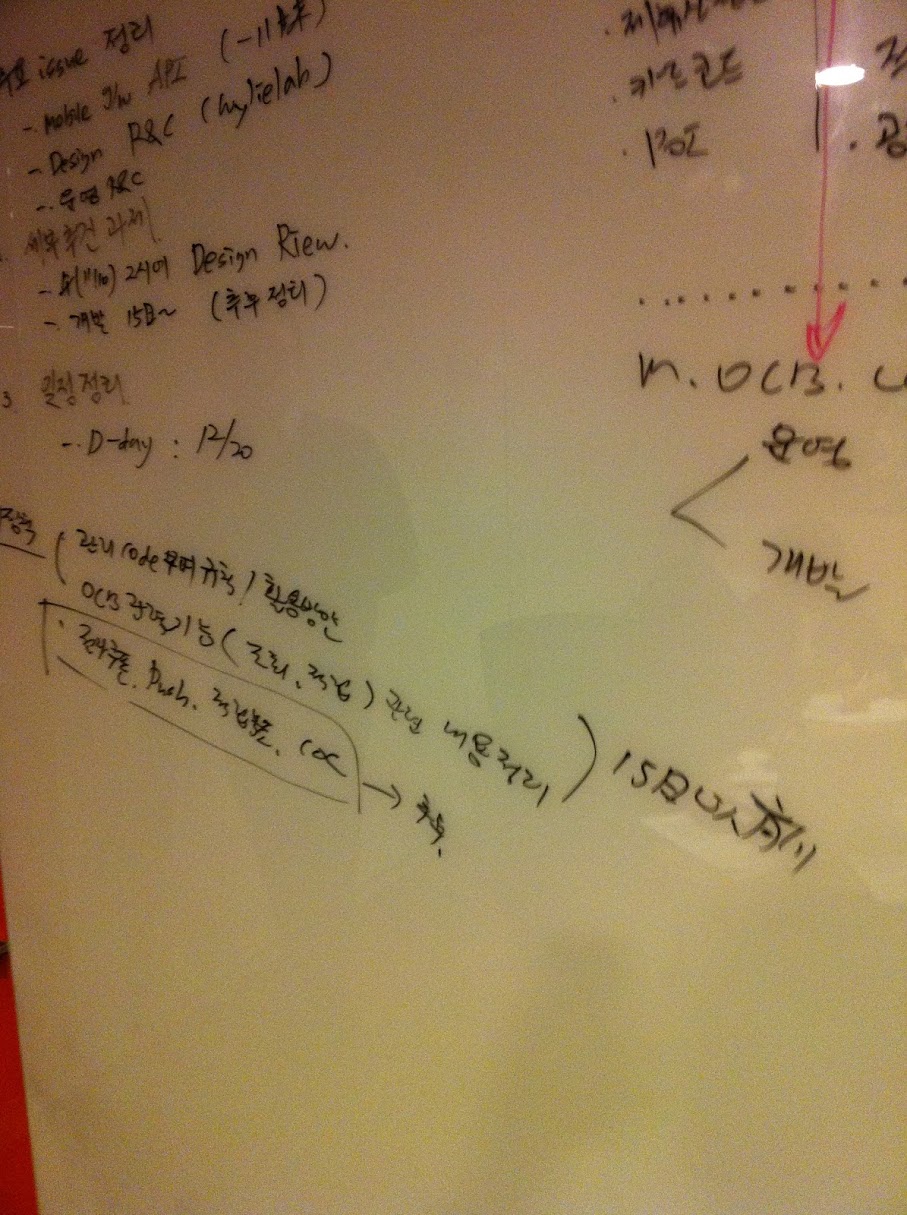 주요 issue 정리
-. Mobile G/W API (~11月末)
-. Design R&C (wylielab)
-. 운영 R&C
세부추진 과제
-. 수(11/10) 2시에 Design Riew.
-. 개발 15日~ (추후 정리)
3 일정 정리
-. D-day : 12/20
정책
관리 Code 부여 규칙 / 활용방안
OCB 관련 기능 (조회, 적립) 관련 내용정리
15日
. Push. 적립쿠폰. COC
→ 추후.
. 키즈코드
. POI
m. OCB.
운영
개발